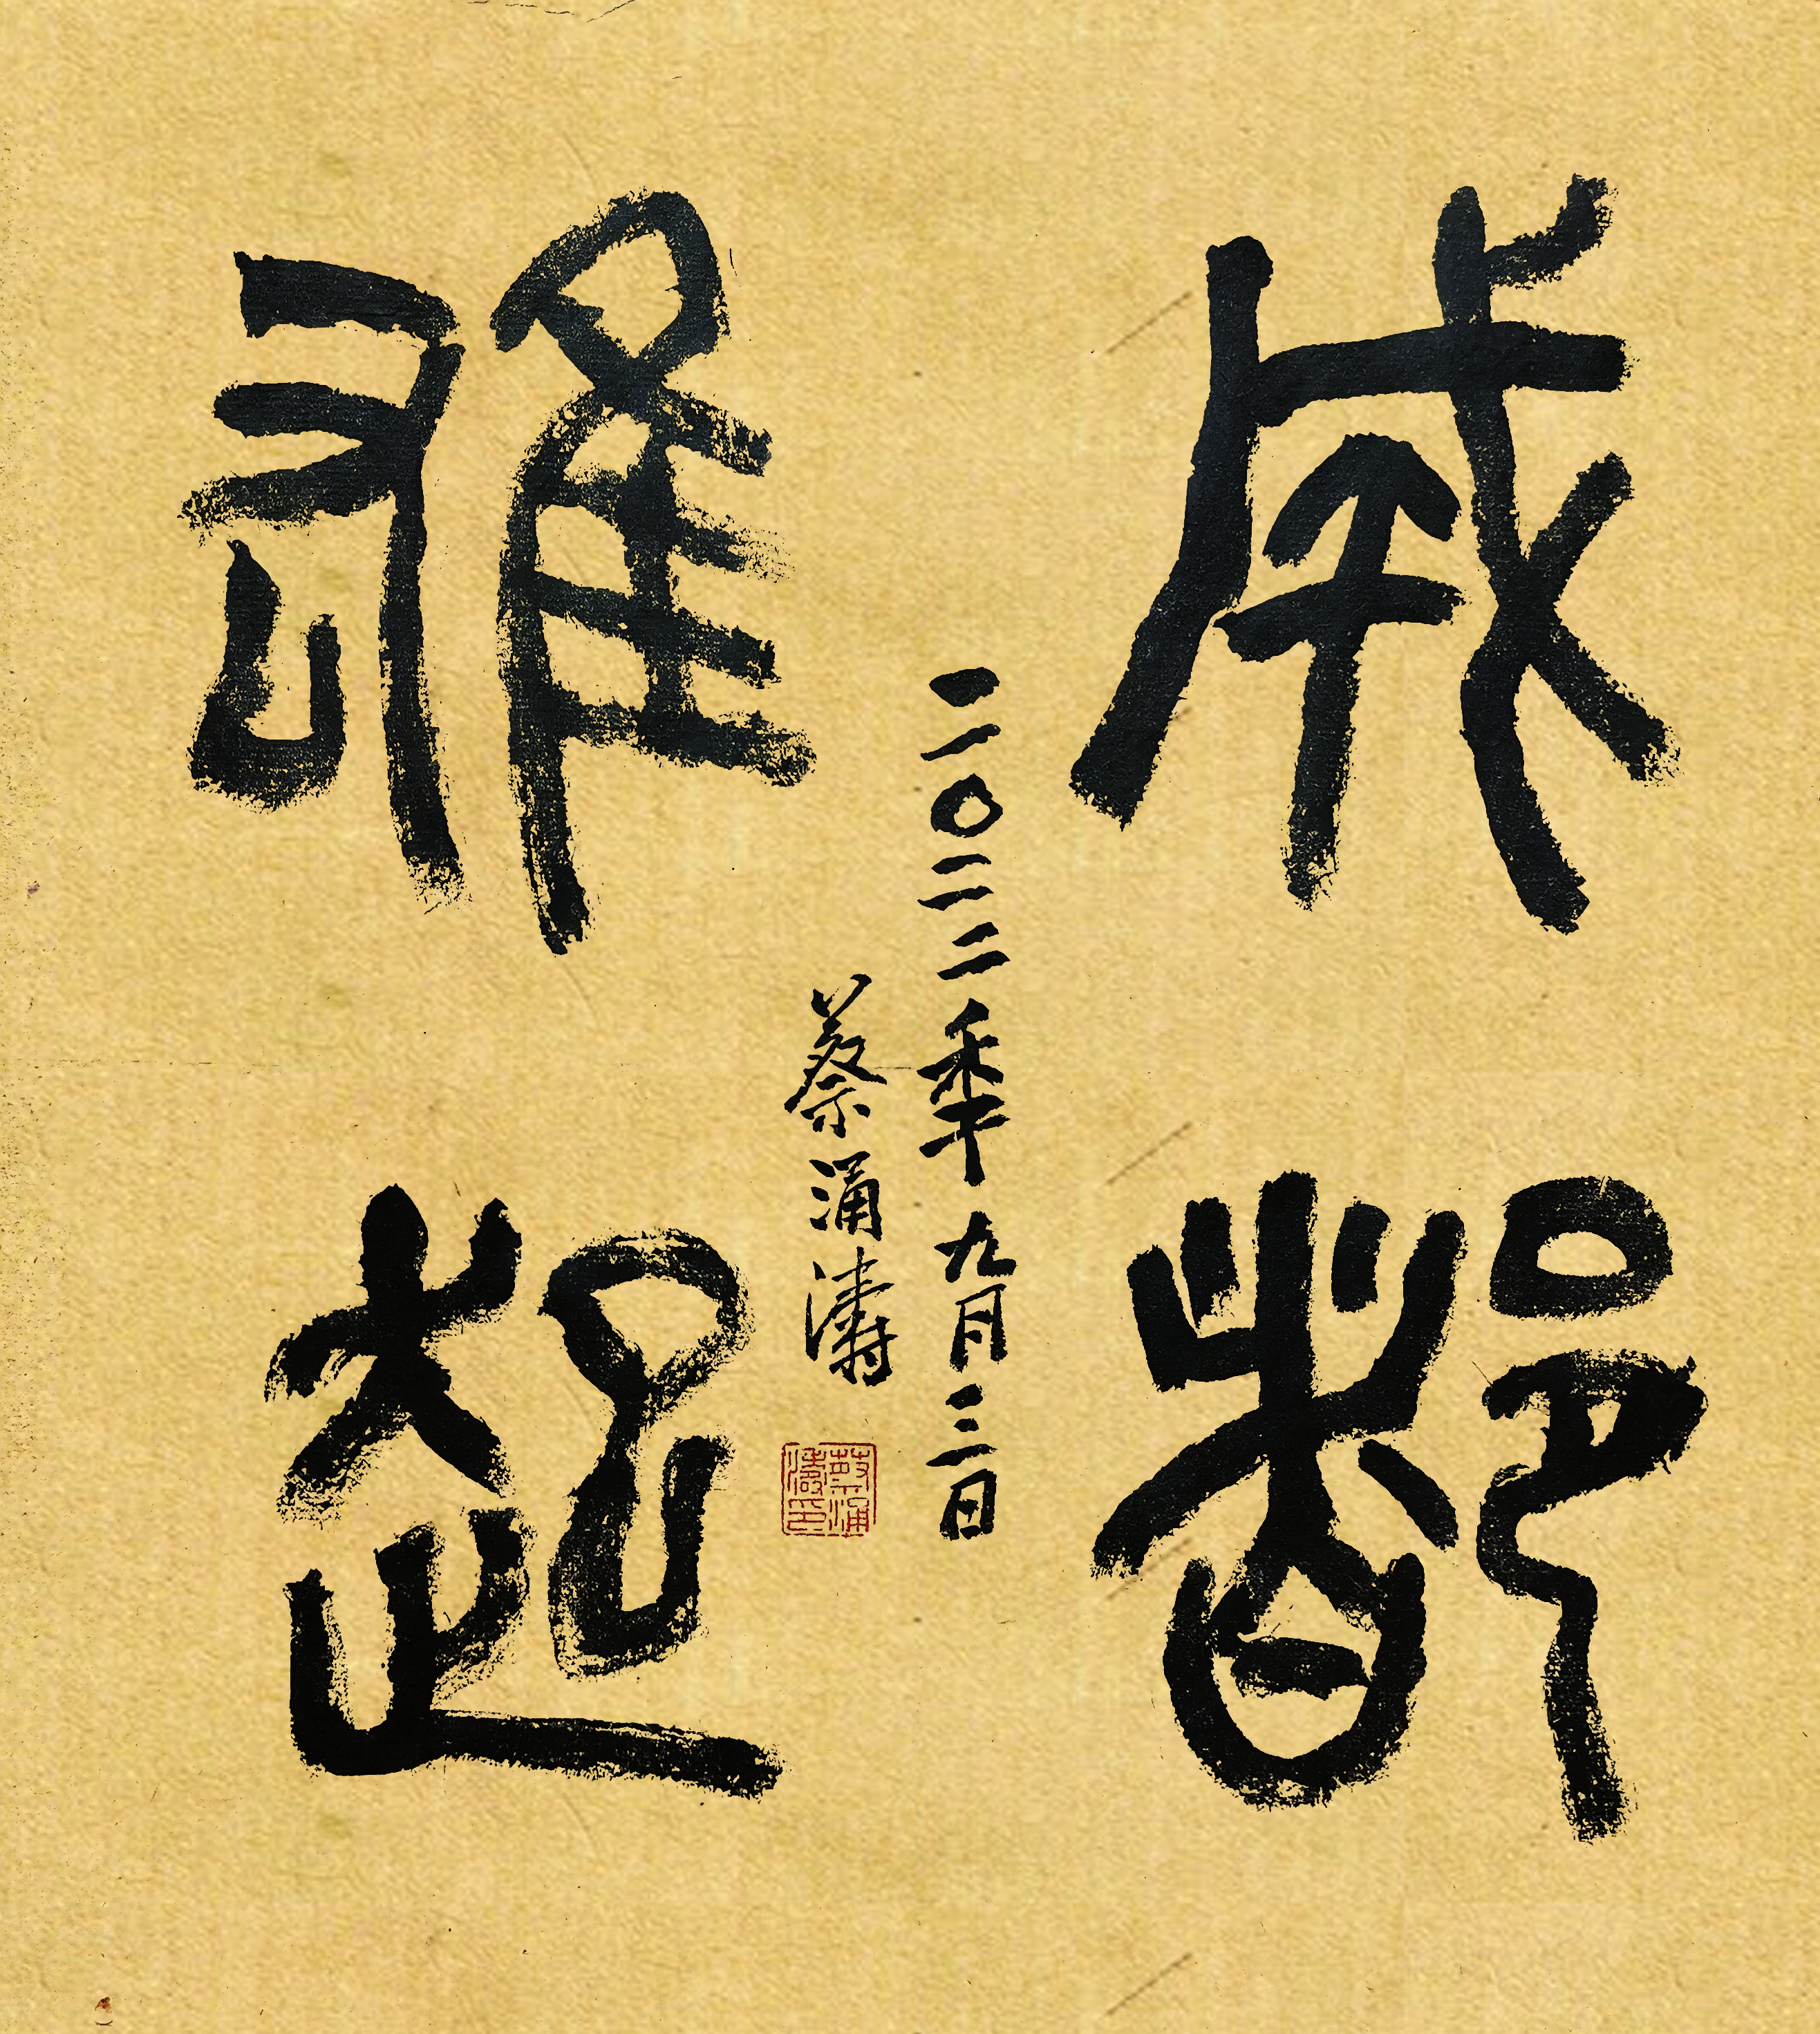 成都
雄起
二〇二二秊九月三日
蔡涌濤
蔡涌濤印